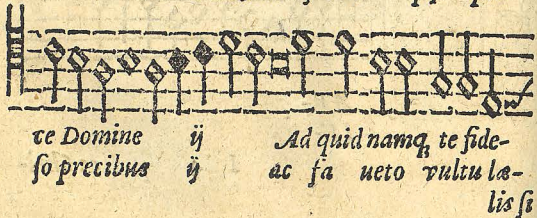 re Domine ij Ad quid namq; te fide-
ſo precibus ij ac fa ueto vultu læ-
lis ſi